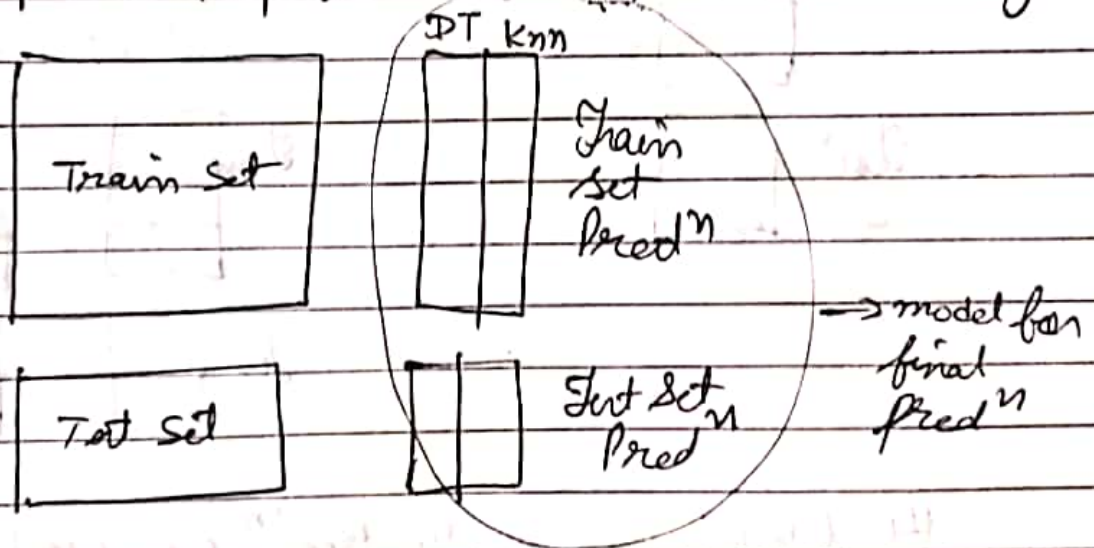 DT Knn
Train Set
Train
Set
Predⁿ
→ model for
final
Predⁿ
Test Set
Test Set
Predⁿ